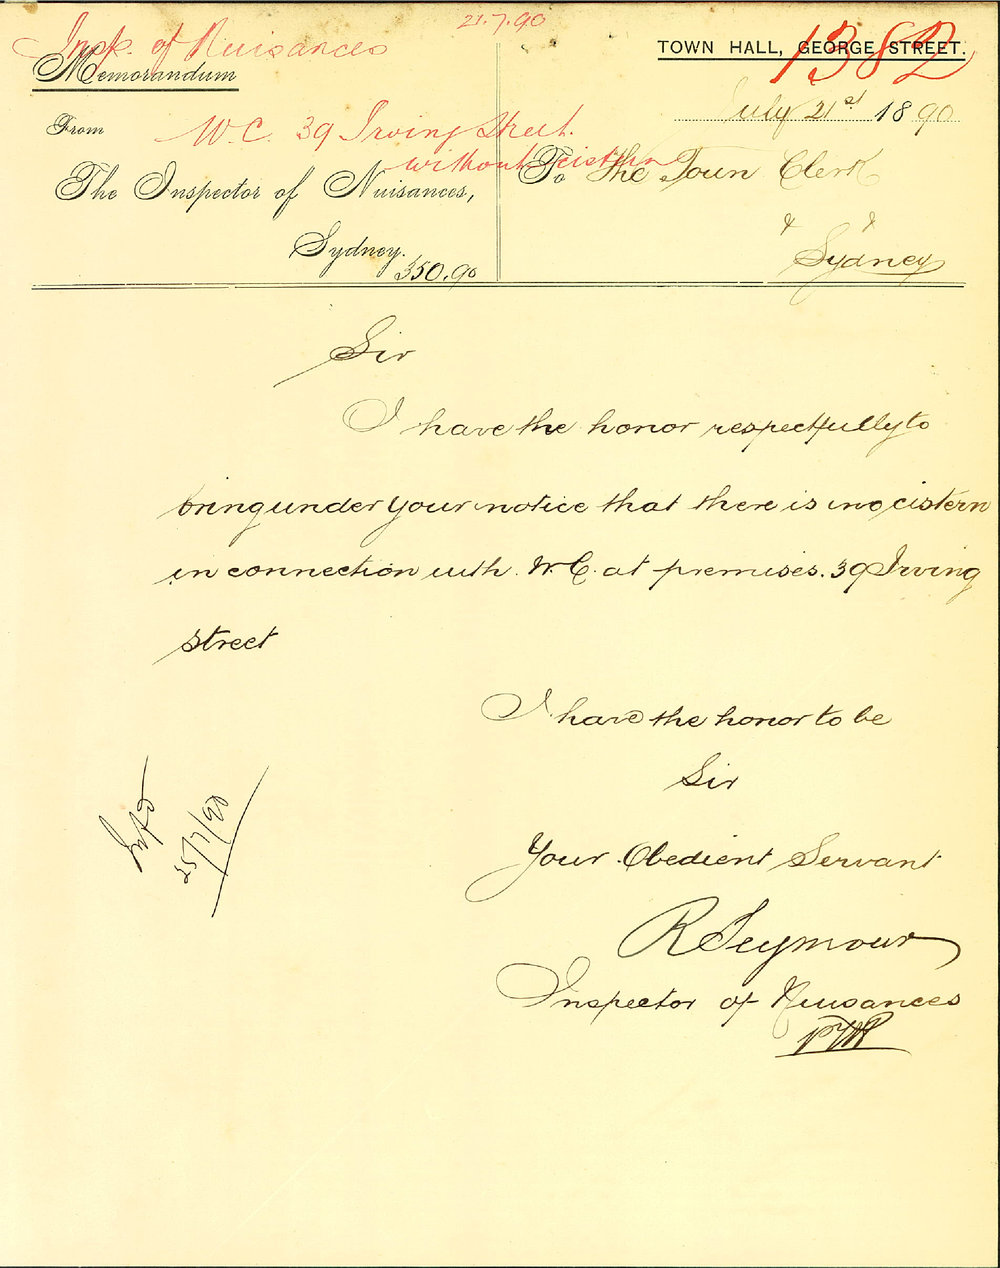 21.7.90
Insp. of Nuisances
1382
Memorandum
TOWN HALL, GEORGE STREET.
July 21st 1890
From
W.C. 39 Irving Street.
without cistern
The Inspector of Nuisances,
Sydney.
350.90
To The Town Clerk
Sydney
Sir
I have the honor respectfully to
bring under your notice that there is no cistern
in connection with W.C. at premises. 39 Irving
street
I have the honor to be
Sir
Your Obedient Servant
R Seymour
Inspector of Nuisances
25/7/90